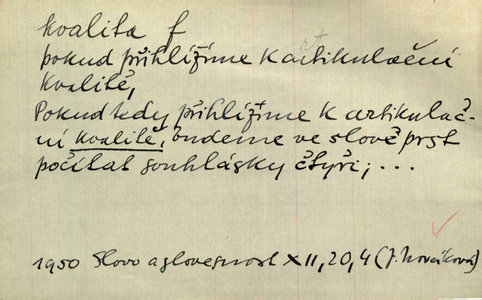 kvalita f
pokud přihlížíme k artikulační
kvalitě,
Pokud tedy přihlížíme k artikulač-
ní kvalitě, budeme ve slově prst
počítat souhlásky čtyři; ...
1950 Slovo a slovesnost XII, 20, 4 (J. Nováková)